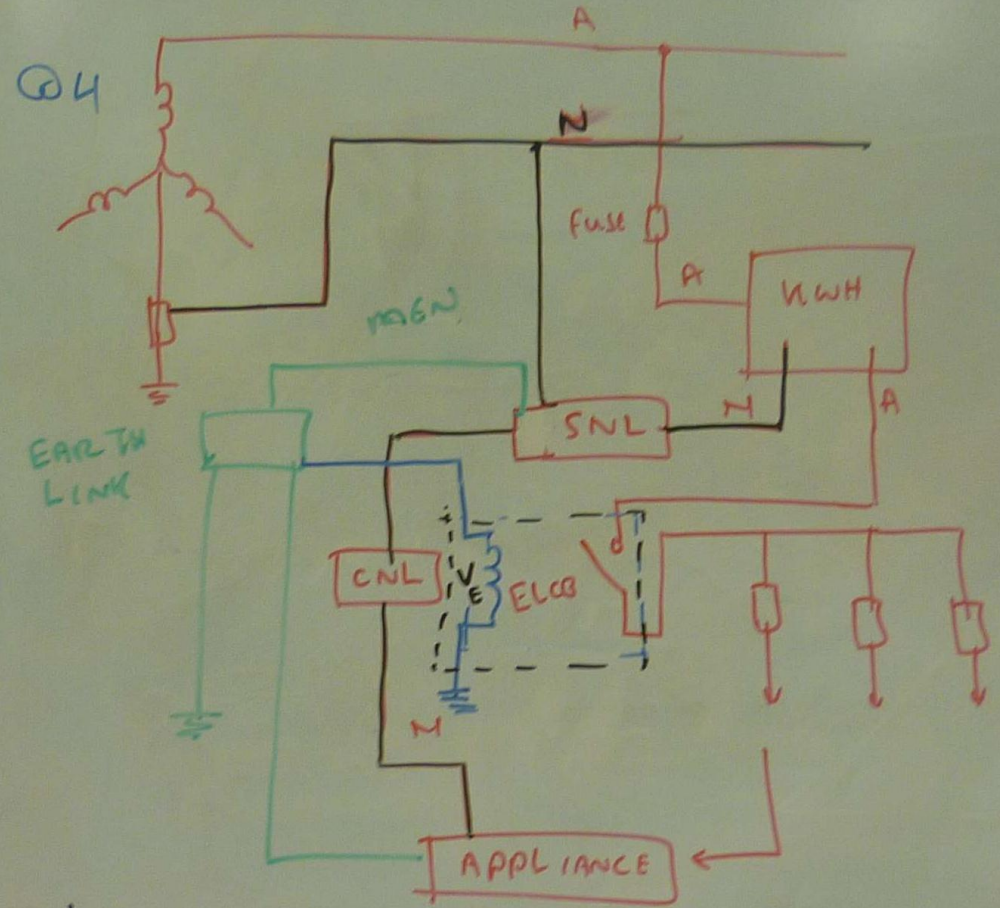 A
Q4
N
Fuse
A
KWH
MEN
SNL
N
A
EARTH
LINK
CNL
VE
ELCB
N
APPLIANCE